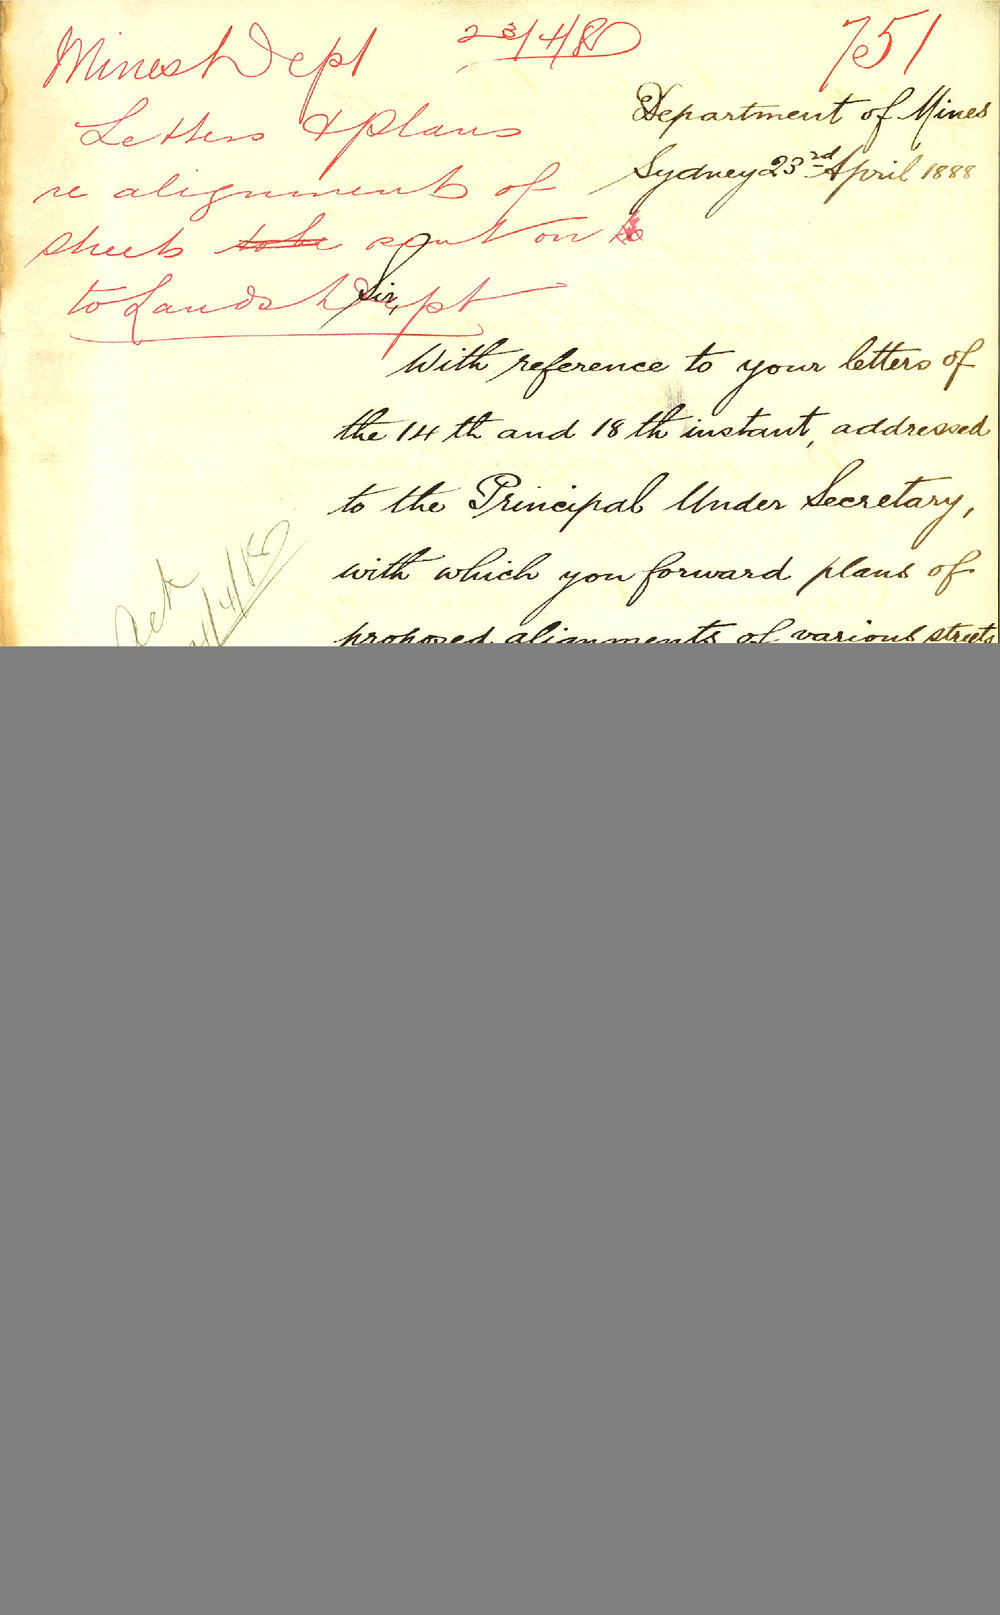 Mines Dept 23/4/88 751
Letters & plans
re alignment of
streets to be sent on to
to Lands Dept
Department of Mines
Sydney 23rd April 1888
Sir,
With reference to your letters of
the 14th and 18th instant, addressed
to the Principal Under Secretary,
with which you forward plans of
proposed alignments of various streets
Ack